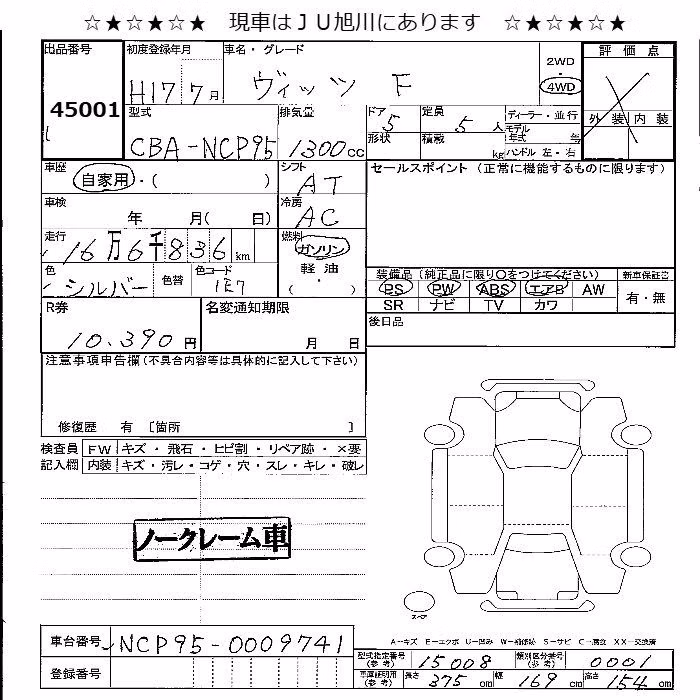 ☆★☆★☆★ 現車はＪＵ旭川にあります ☆★☆★☆★
出品番号 初度登録年月 車名・グレード 評価点
45001 H17 7月 ヴィッツ F 2WD・4WD
外装 内装
型式 排気量 ドア 定員 ディーラー・並行
CBA-NCP95 1300cc 5 5人 モデル年式
形状 積載 kg ハンドル 左・右
車歴 自家用・( ) シフト AT セールスポイント (正常に機能するものに限ります)
車検 年 月( 日) 冷房 AC
走行 16万6千836km 燃料 ガソリン 軽油 ・ ( )
色 シルバー 色替 色コード 1E7
装備品 (純正品に限り○をつけてください) 新車保証書
PS PW ABS エアB AW 有・無
SR ナビ TV カワ
R券 10.390円 名変通知期限 月 日 後日品
注意事項申告欄(不具合内容等は具体的に記入して下さい)
修復歴 有 [箇所 ]
検査員 FW キズ・飛石・ヒビ割・リペア跡・×要
記入欄 内装 キズ・汚レ・コゲ・穴・スレ・キレ・破レ
ノークレーム車
スペア
A－キズ E－エクボ U－凹み W－補修跡 S－サビ C－腐食 XX－交換済
車台番号 NCP95-0009741
登録番号
型式指定番号(参考) 15008 類別区分番号(参考) 0001
車庫証明用(参考) 長さ 375cm 幅 169cm 高さ 154cm